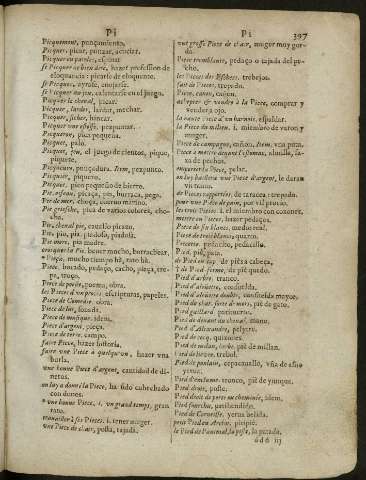 Pi
Picquement, punçamiento.
Picquer, picar, punzar, acuciar.
Picquer en
se Picquer de bien dire, hazer profession de
eloquencia: picarse de eloquente.
se Picquer, ayrose, enojarse.
se Picquer au jeu, calentarse en el juego.
Picquer le cheual, picar.
Picquer, larder, lardar, mechar.
Picquer, ficher, hincar.
Picquer vne estoffe, pespuntar.
Picqueron, pica pequeña.
Picquet, palo.
Picquet, jeu, el juego de cientos, pique,
piquete.
Picqueure, punçadura. Item, pespunto.
Picquier, piquero.
Picquot, pico pequeño de hierro.
Pie, oiseau, picaça, pie, hurraca, pega.
Pie de mer, choça, cueruo marino.
Pie griesche, pica de varios colores, cho-
cho.
Pie, cheual pie, cauallo picazo.
Pie, pio, pia, piadoso, piadosa.
Pie mere, pia madre.
croquer la Pie, beuer mucho, borrachear.
Pieça, mucho tiempo hà, rato hà.
Piece, bocado, pedaço, cacho, pieça, tro-
pe, troço.
Piece de poësie, poema, obra.
les Pieces d'vn procés, escripturas, papeles.
Piece de Comedie, obra.
Piece de lut, sonada.
Piece de musique, idem.
Piece d'argent, pieça.
Piece de terre, campo.
faire Piece, hazer historia.
faire vne Piece à quelqu'vn, hazer vna
burla.
vne bonne Piece d'argent, cantidad de di-
neros.
on luy a donné la Piece, ha sido cohechado
con dones.
vne bonne Piece, i. vn grand temps, gran
rato.
manier ses Pieces, i. tener muger.
vne Piece de chair, posta, tajada.
Pi
397
vne grosse Piece de chair, muger muy gor-
da.
Piece tremblante, pedaço o tajada del pe-
cho.
les Pieces des Eschets, trebejos.
saut de Pieces, trepado.
Piece, canon, cañon.
achepter & vendre à la Piece, comprar y
vender a ojo.
la haute Piece d'vn harnois, espaldar.
la Piece du milieu, i. miembro de varon y
muger.
Piece de campagne, cañon, Item, vna puta.
Piece à mettre deuant l'estomac, almilla, fa-
xa de pechos.
emporter la Piece, pelar.
on luy baillera vne Piece d'argent, le daran
vn tanto.
de Pieces rapportées, de taracea: trepado.
pour vne Piece de pain, por vil precio.
les trois Pieces: i. el miembro con coxones.
mettre en pieces, hazer pedaços.
Piece de six blancs, medio real.
Piece de trois blancs, quarto.
Piecette, pedacito, pedacillo.
Pied, pie, pata.
de Pied en cap, de pie a cabeça.
de Pied-ferme, de pie quedo.
Pied d'arbre, tronco.
Pied d'alouëtte, coguilda.
Pied d'alouëtte double, consuelda mayor.
Pied de chat, forte de mors, pie de gato.
Pied gaillard, perinetito.
Pied de deuant de cheual, mano.
Pied d'Alexandre, pelytre.
Pied de cocq, quixones.
Pied de milan, herbe, pie de millan.
Pied de lievre, trebol.
Pied de poulain, capacauallo, vña de asno
yerua.
Pied d'enclume, tronco, pie de yunque.
Pied droit, poste.
Pied droit de porte ou cheminée, idem.
Pied fourchu, patihendido.
Pied de Corneille, yerua belida.
pied pour pied en Arabie, piepie.
le Pied de l'animal, la poste, la pisada.
ddd iij